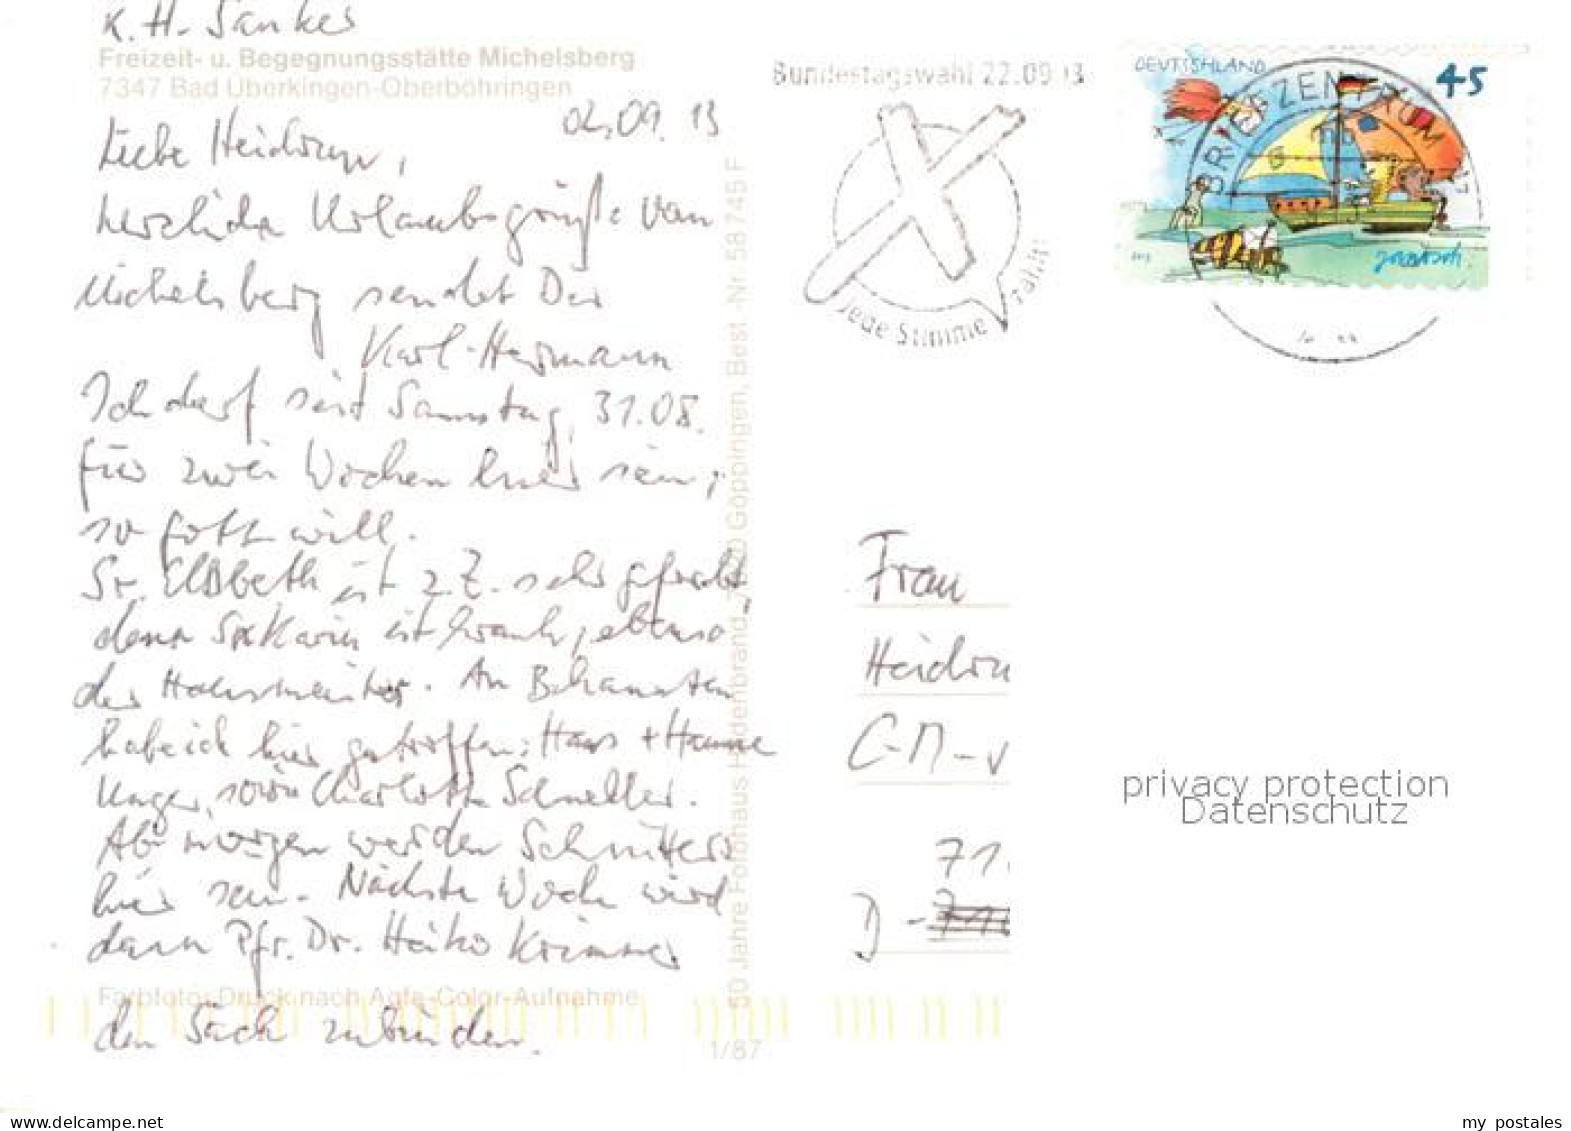 K. H. Sänker
Freizeit- u. Begegnungsstätte Michelsberg
7347 Bad Überkingen-Oberböhringen
02.09.13
Liebe Heidrun,
herzliche Urlaubsgrüße vom
Michelsberg sendet Dir
Karl-Hermann
Ich darf seit Samstag, 31.08.
für zwei Wochen hier sein,
so Gott will.
Sr. Elsbeth ist z.Z. sehr gefordert,
denn Sr. Karin ist krank, ebenso
der Hausmeister. An Bekannten
habe ich hier getroffen: Hans + Hanne
Unger, sowie Charlotte Schneller.
Ab morgen werden Schnitters
hier sein. Nächste Woche wird
dann Pfr. Dr. Heiko Krimmer
Farbfoto: Druck nach Agfa-Color-Aufnahme
den Sack zubinden.
1/87
50 Jahre Fotohaus Hildenbrand, Göppingen, Best.-Nr. 58745 F
Bundestagswahl 22.09.13
Jede Stimme zählt!
DEUTSCHLAND
45
BRIEFZENTRUM
Janosch
Frau
Heidru
C-M-v
71
D-710
privacy protection
Datenschutz
my postales